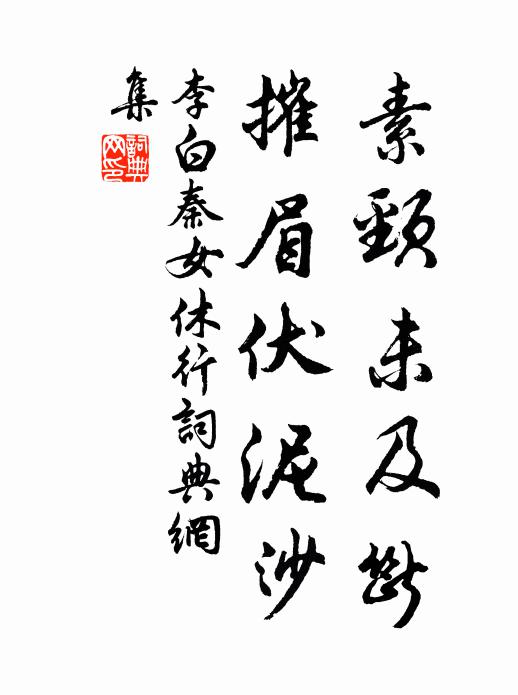 素頸未及斷
摧眉伏泥沙
李白秦女休行詞典網
集
詞典網印